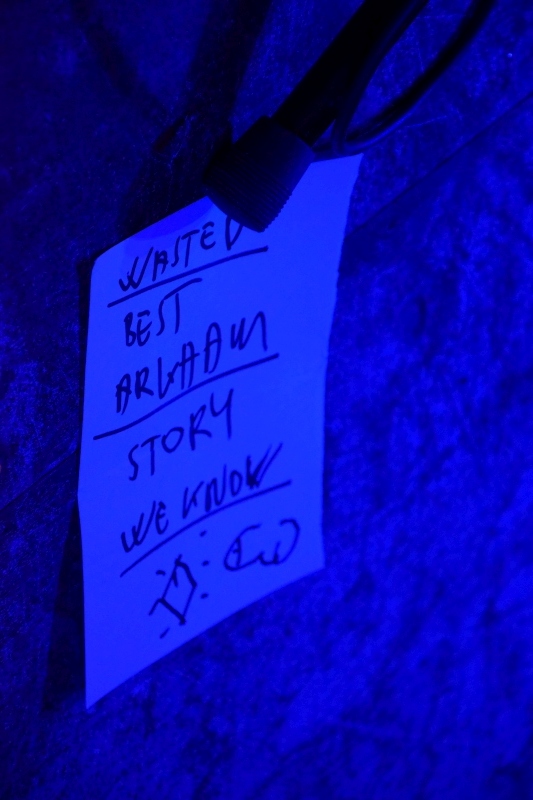 WASTED
BEST
ARWAAM
STORY
WE KNOW